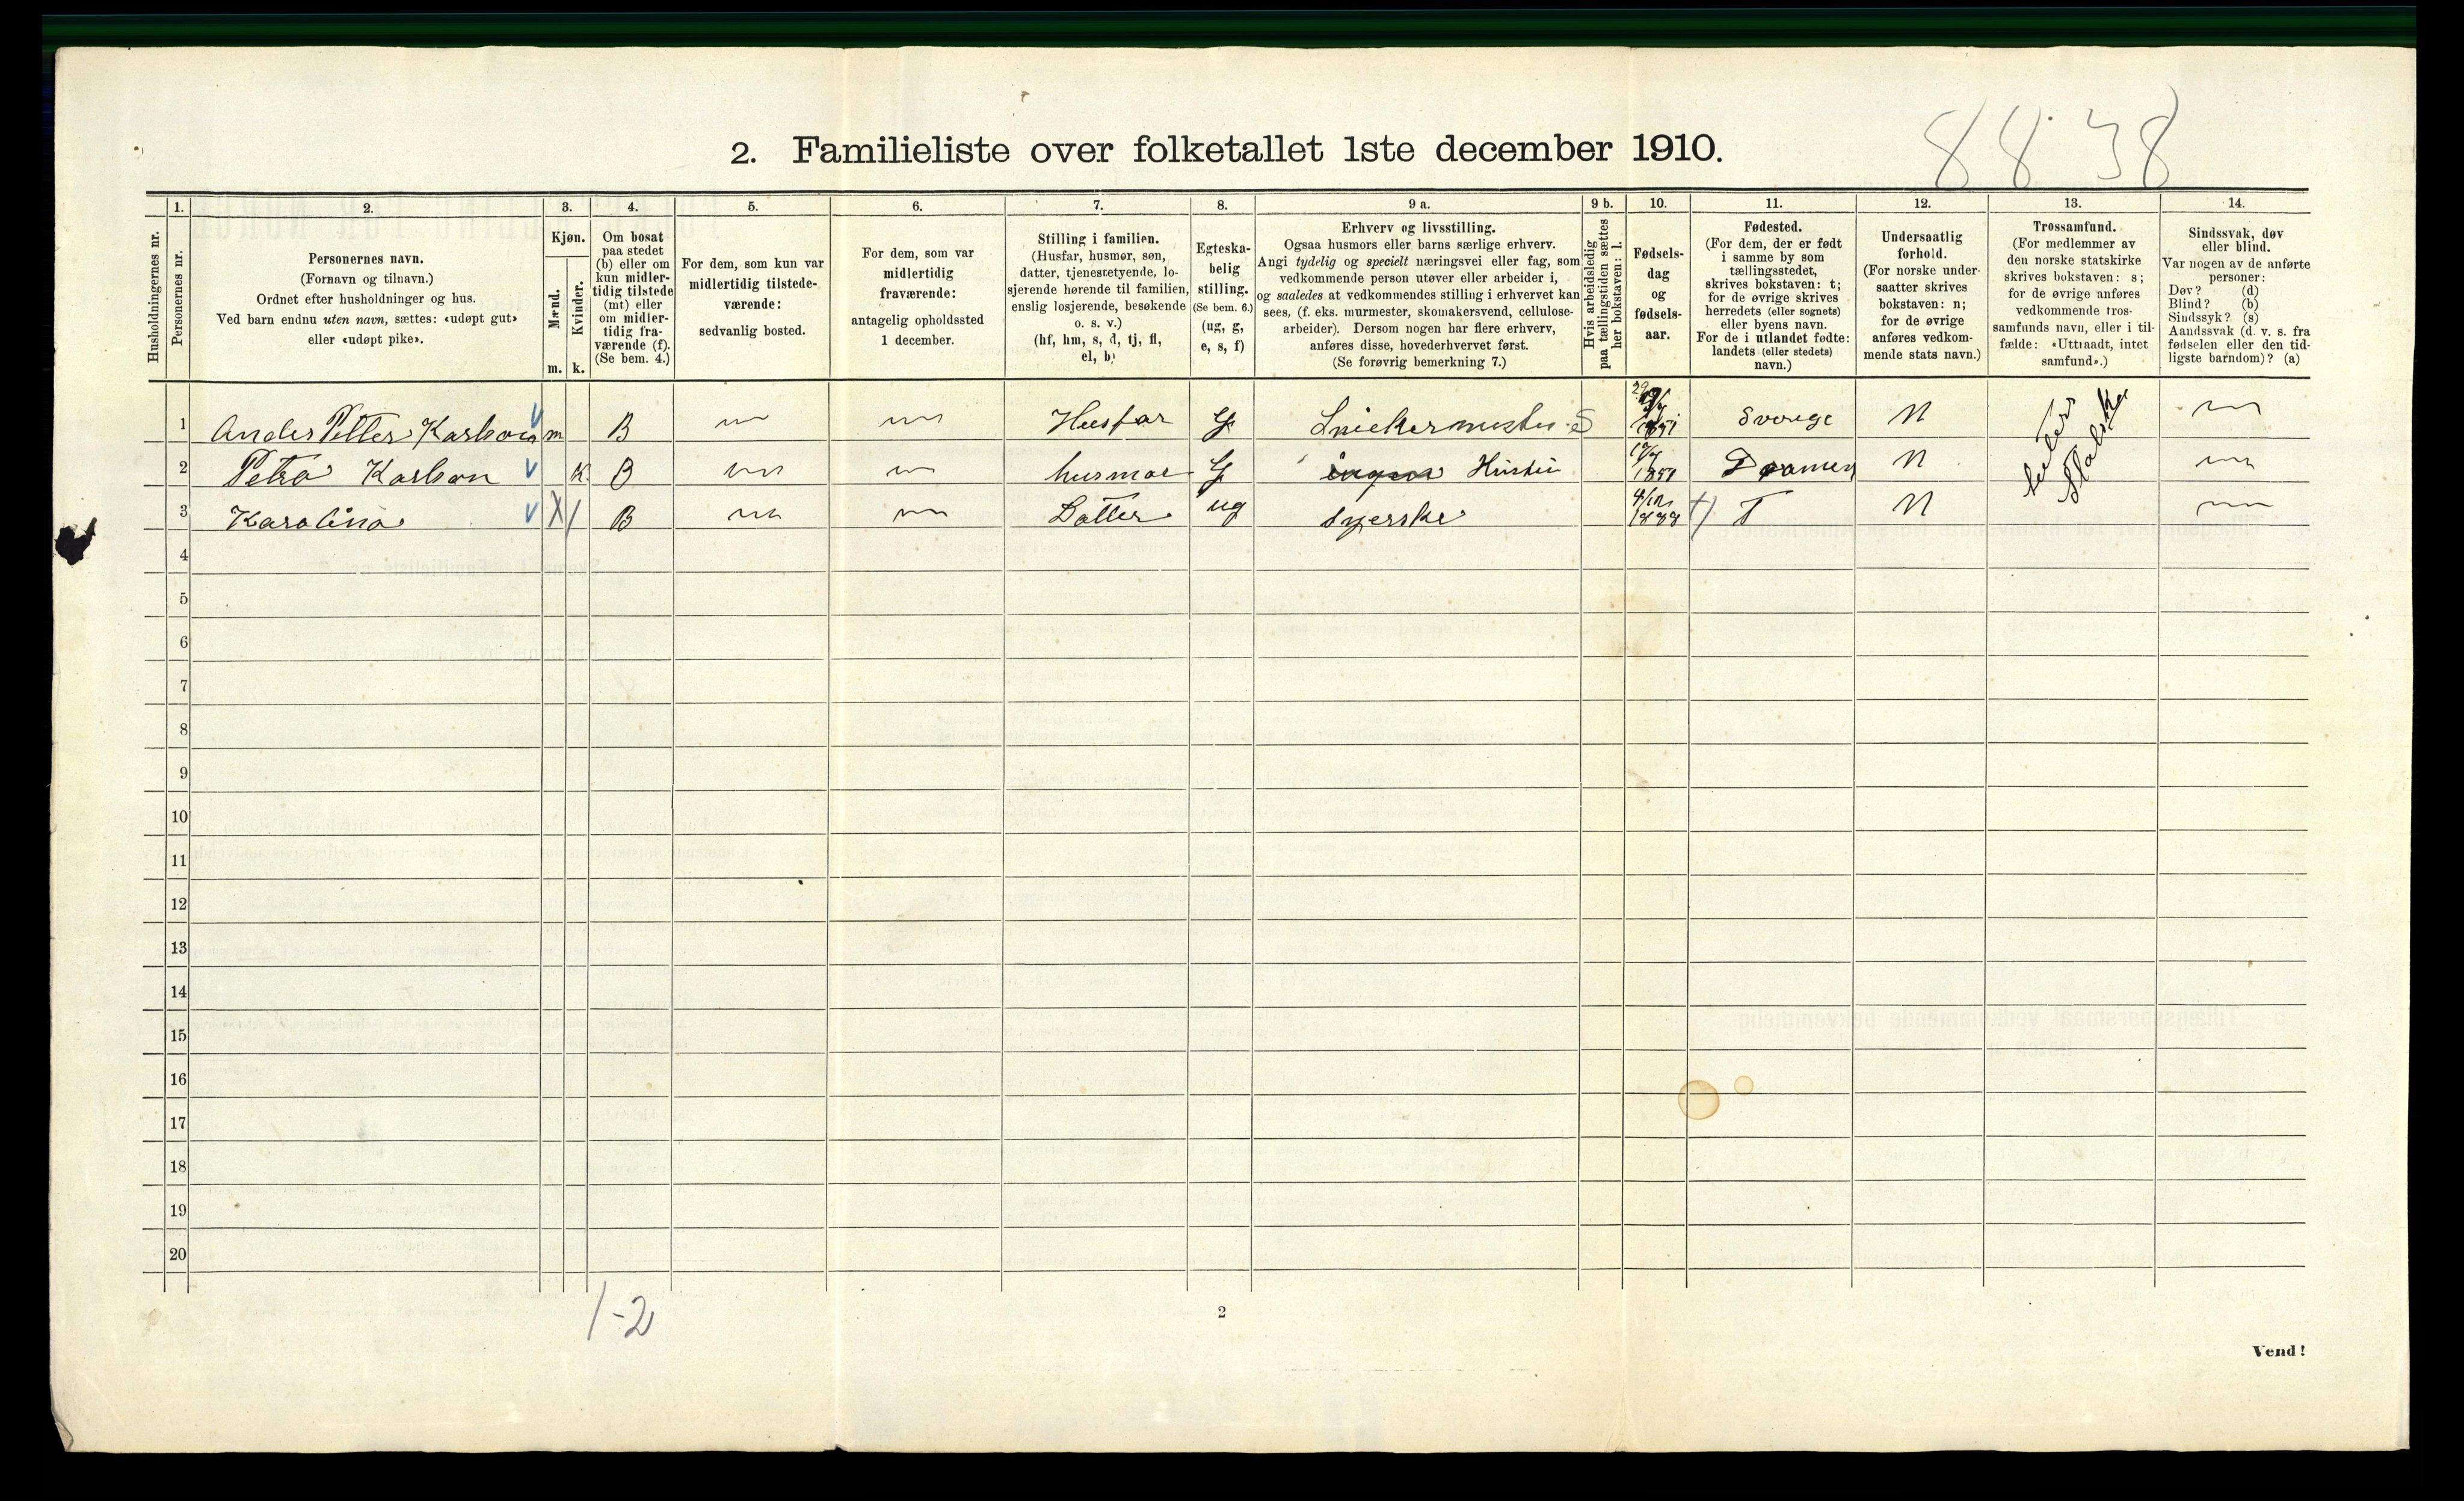 88 38
2. Familieliste over folketallet 1ste december 1910.
1. 2. 3. 4. 5. 6. 7. 8. 9 a. 9 b. 10. 11. 12. 13. 14.
Husholdningernes nr.
Personernes nr.
Personernes navn.
(Fornavn og tilnavn.)
Ordnet efter husholdninger og hus.
Ved barn endnu uten navn, sættes: «udøpt gut»
eller «udøpt pike».
Kjøn.
Mænd.
Kvinder.
m. k.
Om bosat
paa stedet
(b) eller om
kun midler-
tidig tilstede
(mt) eller
om midler-
tidig fra-
værende (f).
(Se bem. 4.)
For dem, som kun var
midlertidig tilstede-
værende:
sedvanlig bosted.
For dem, som var
midlertidig
fraværende:
antagelig opholdssted
1 december.
Stilling i familien.
(Husfar, husmor, søn,
datter, tjenestetyende, lo-
sjerende hørende til familien,
enslig losjerende, besøkende
o. s. v.)
(hf, hm, s, d, tj, fl,
el, b)
Egteska-
belig
stilling.
(Se bem. 6.)
(ug, g,
e, s, f)
Erhverv og livsstilling.
Ogsaa husmors eller barns særlige erhverv.
Angi tydelig og specielt næringsvei eller fag, som
vedkommende person utøver eller arbeider i,
og saaledes at vedkommendes stilling i erhvervet kan
sees, (f. eks. murmester, skomakersvend, cellulose-
arbeider). Dersom nogen har flere erhverv,
anføres disse, hovederhvervet først.
(Se forøvrig bemerkning 7.)
Hvis arbeidsledig
paa tællingstiden sættes
her bokstaven: l.
Fødsels-
dag
og
fødsels-
aar.
Fødested.
(For dem, der er født
i samme by som
tællingsstedet,
skrives bokstaven: t;
for de øvrige skrives
herredets (eller sognets)
eller byens navn.
For de i utlandet fødte:
landets (eller stedets)
navn.)
Undersaatlig
forhold.
(For norske under-
saatter skrives
bokstaven: n;
for de øvrige
anføres vedkom-
mende stats navn.)
Trossamfund.
(For medlemmer av
den norske statskirke
skrives bokstaven: s;
for de øvrige anføres
vedkommende tros-
samfunds navn, eller i til-
fælde: «Uttraadt, intet
samfund».)
Sindssvak, døv
eller blind.
Var nogen av de anførte
personer:
Døv? (d)
Blind? (b)
Sindssyk? (s)
Aandssvak (d. v. s. fra
fødselen eller den tid-
ligste barndom)? (a)
1 Anders Petter Karlson m B Husfar G Snickermester S 1851 Sverige N
2 Petra Karlson K B husmor G Hustru 1851 Dramen N
3 Karolina X / B Datter ug syerske 1888 T N
4
5
6
7
8
9
10
11
12
13
14
15
16
17
18
19
20
1-2
2
Vend!